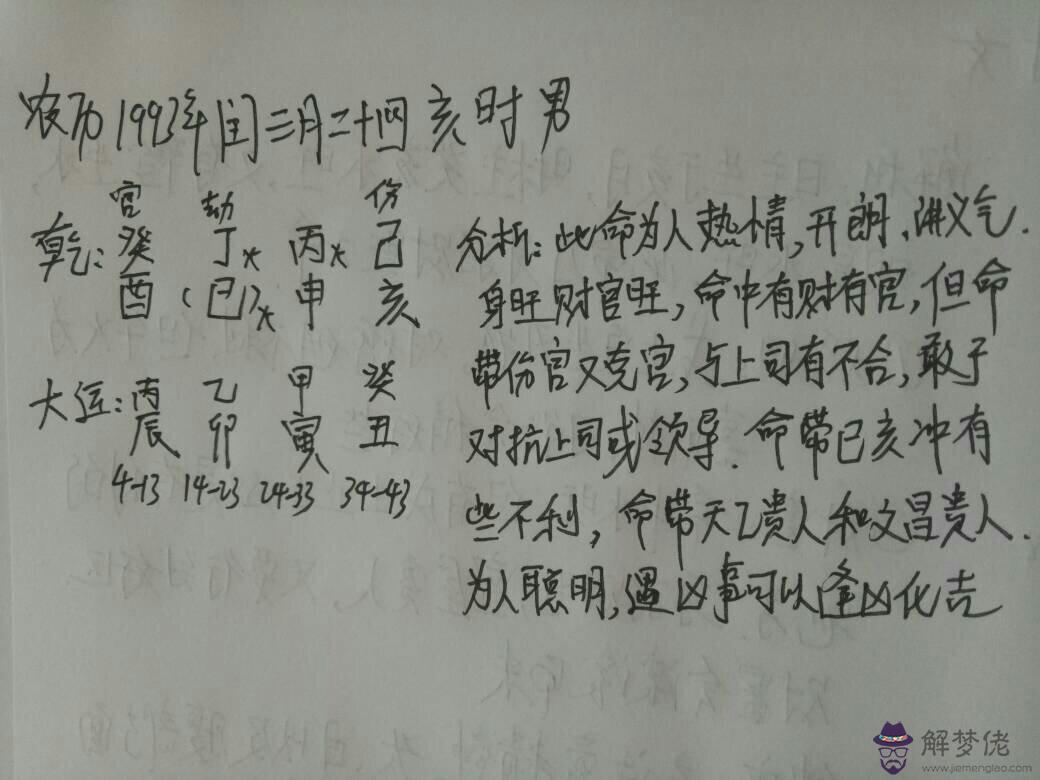 农历1993年闰三月二十四亥时男
官 劫 伤
乾: 癸 丁* 丙* 己
酉 (巳)* 申 亥
大运: 丙 乙 甲 癸
辰 卯 寅 丑
4-13 14-23 24-33 34-43
分析: 此命为人热情, 开朗、讲义气.
身旺财官旺, 命中有财有官, 但命
带伤官又克官, 与上司有不合, 敢于
对抗上司或领导. 命带巳亥冲有
些不利, 命带天乙贵人和文昌贵人.
为人聪明, 遇凶事可以逢凶化吉
解梦佬
www.jiemenglao.com